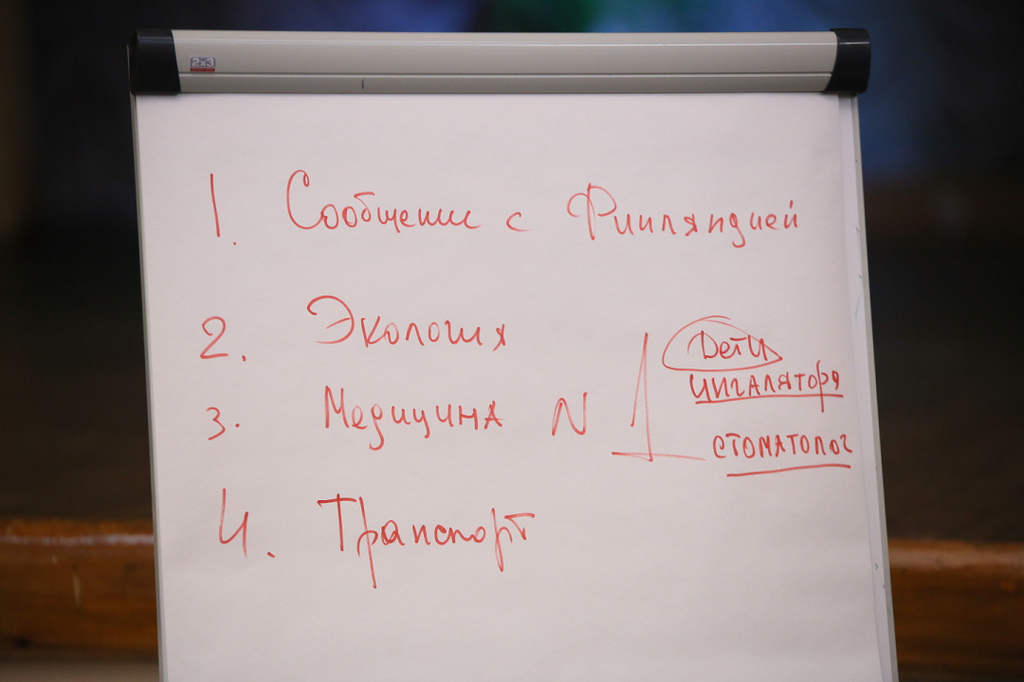 1. Сообщение с Финляндией
2. Экология
3. Медицина N 1
Дети
ингалятора
стоматолог
4. Транспорт
2x3